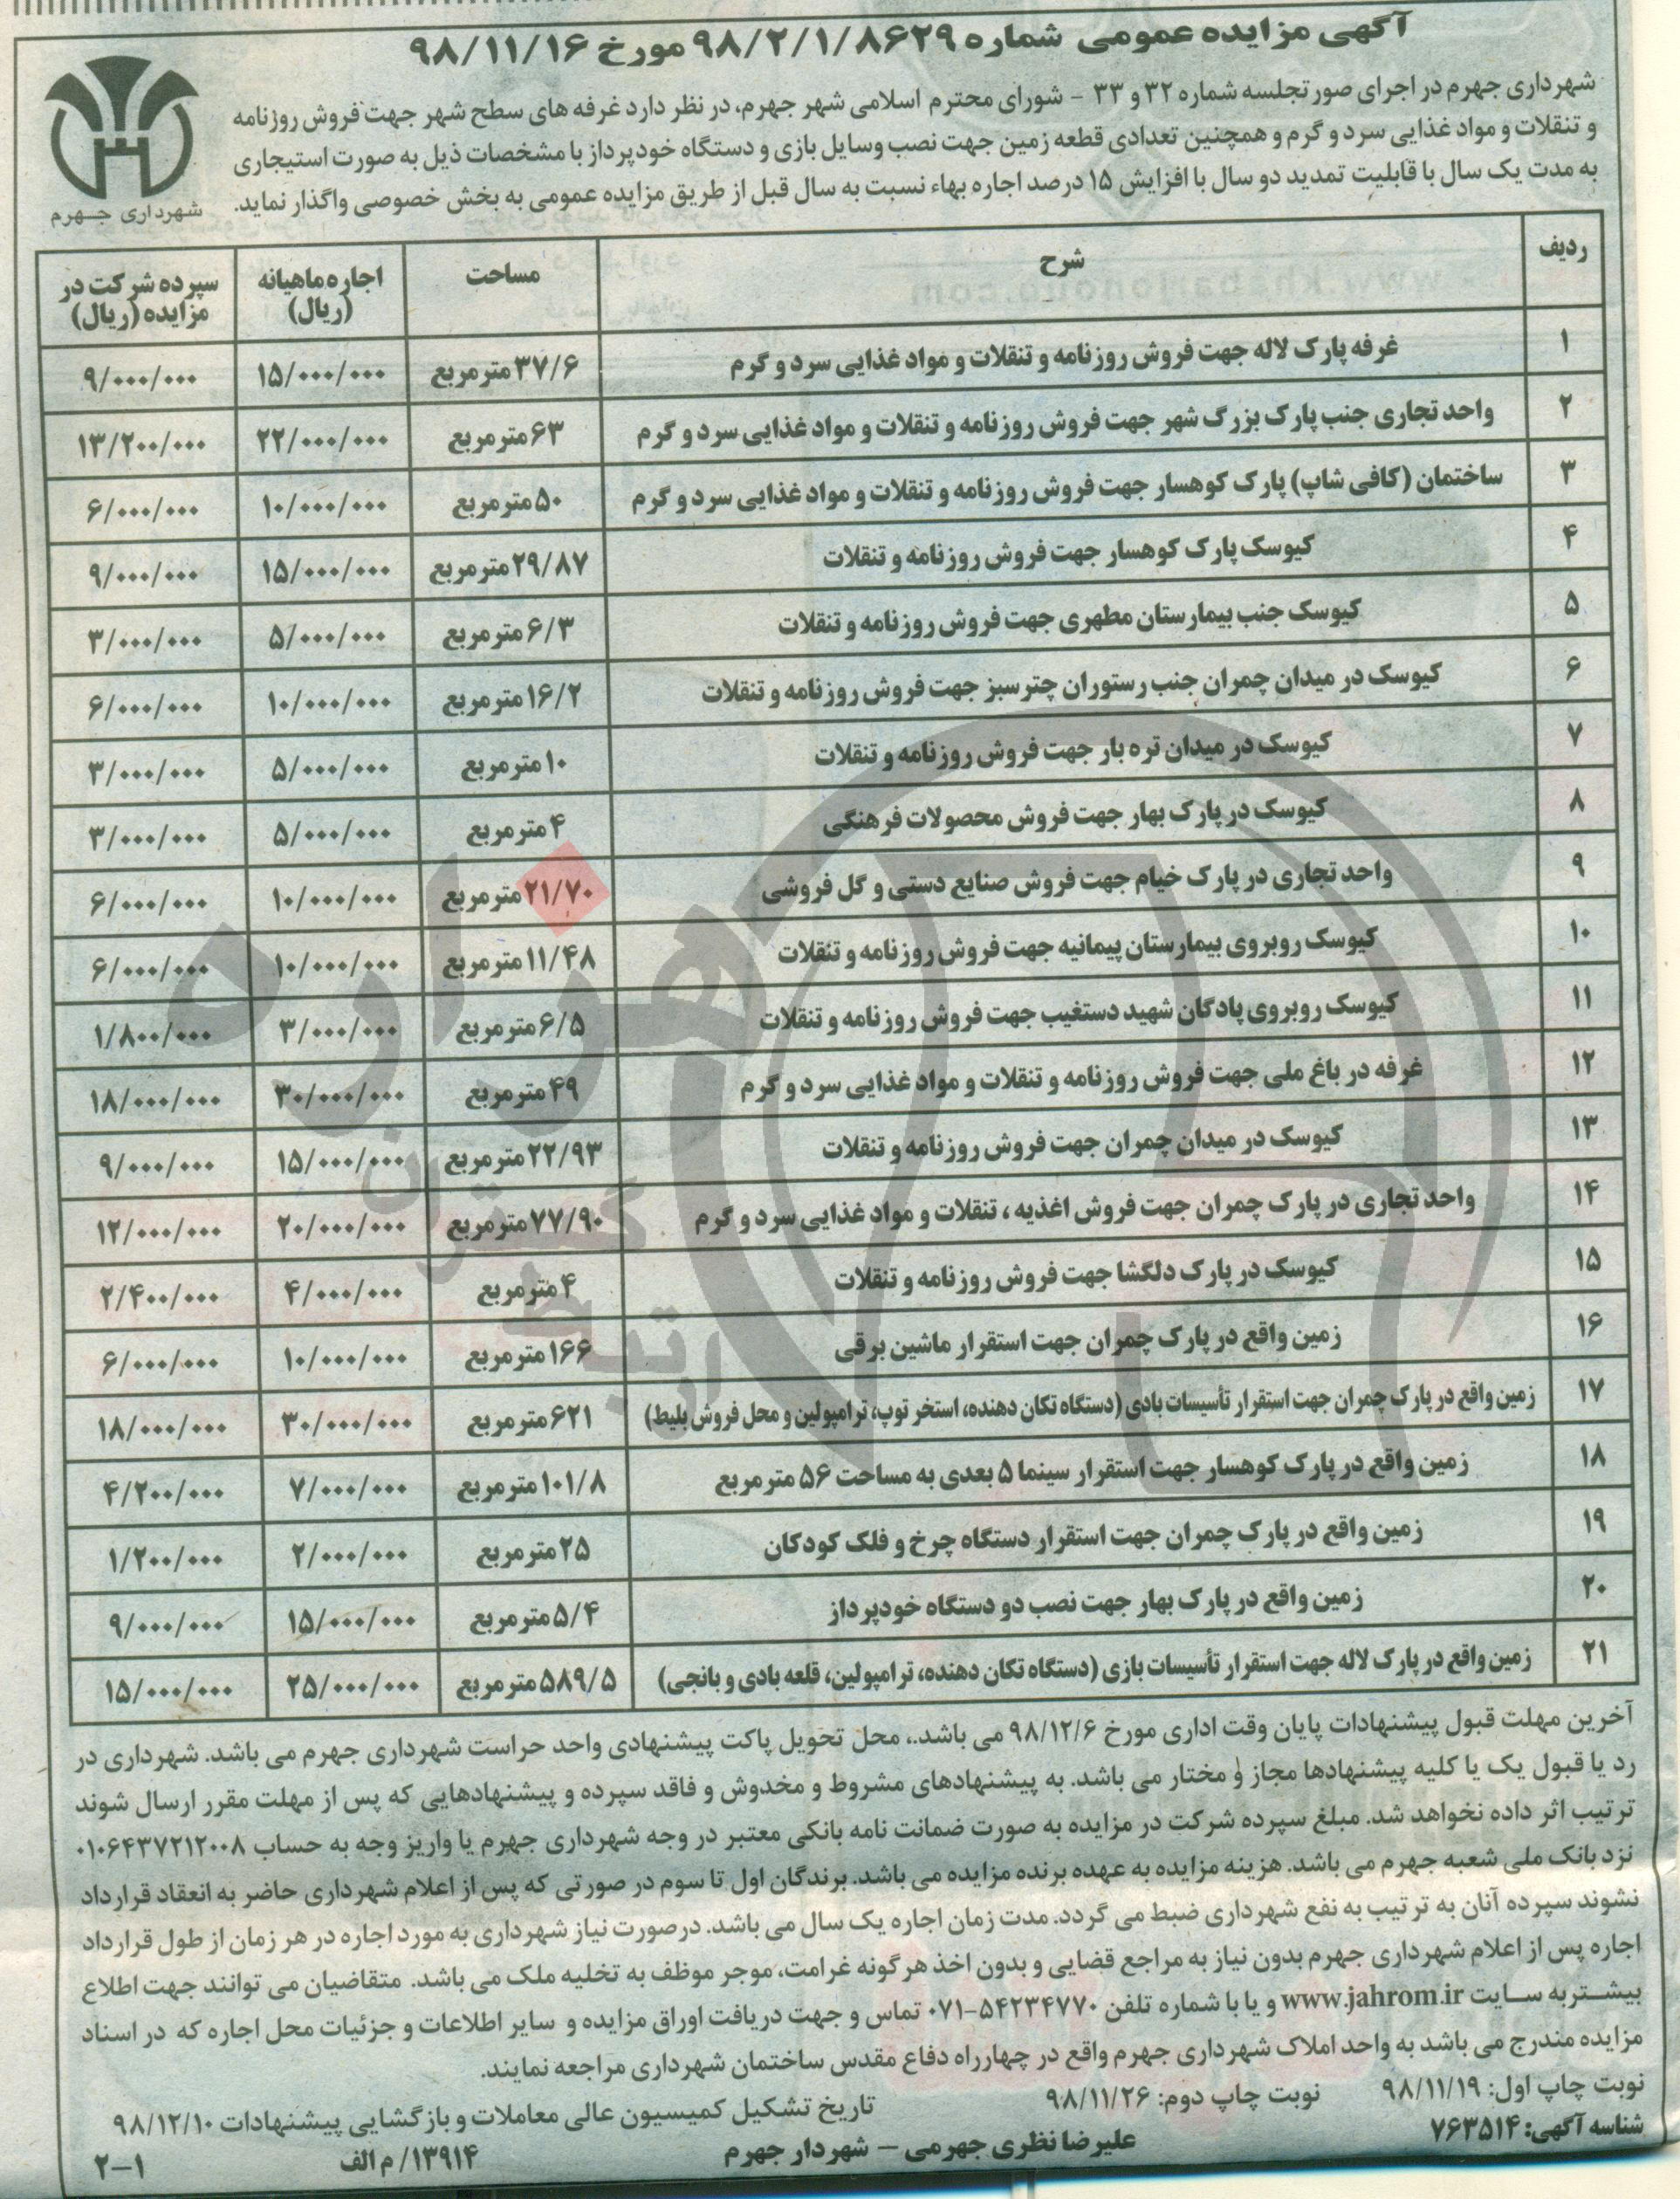 آگهی مزایده عمومی شماره ۹۸/۲/۱/۸۶۲۹ مورخ ۹۸/۱۱/۱۶
شهرداری جهرم در اجرای صورتجلسه شماره ۳۲ و ۳۳ - شورای محترم اسلامی شهر جهرم، در نظر دارد غرفه های سطح شهر جهت فروش روزنامه
و تنقلات و مواد غذایی سرد و گرم و همچنین تعدادی قطعه زمین جهت نصب وسایل بازی و دستگاه خودپرداز با مشخصات ذیل به صورت استیجاری
به مدت یک سال با قابلیت تمدید دو سال با افزایش ۱۵ درصد اجاره بهاء نسبت به سال قبل از طریق مزایده عمومی به بخش خصوصی واگذار نماید.
شهرداری جهرم
ردیف شرح مساحت اجاره ماهیانه (ریال) سپرده شرکت در مزایده (ریال)
۱ غرفه پارک لاله جهت فروش روزنامه و تنقلات و مواد غذایی سرد و گرم ۳۷/۶ مترمربع ۱۵/۰۰۰/۰۰۰ ۹/۰۰۰/۰۰۰
۲ واحد تجاری جنب پارک بزرگ شهر جهت فروش روزنامه و تنقلات و مواد غذایی سرد و گرم ۶۳ مترمربع ۲۲/۰۰۰/۰۰۰ ۱۳/۲۰۰/۰۰۰
۳ ساختمان (کافی شاپ) پارک کوهسار جهت فروش روزنامه و تنقلات و مواد غذایی سرد و گرم ۵۰ مترمربع ۱۰/۰۰۰/۰۰۰ ۶/۰۰۰/۰۰۰
۴ کیوسک پارک کوهسار جهت فروش روزنامه و تنقلات ۲۹/۸۷ مترمربع ۱۵/۰۰۰/۰۰۰ ۹/۰۰۰/۰۰۰
۵ کیوسک جنب بیمارستان مطهری جهت فروش روزنامه و تنقلات ۶/۳ مترمربع ۵/۰۰۰/۰۰۰ ۳/۰۰۰/۰۰۰
۶ کیوسک در میدان چمران جنب رستوران چترسبز جهت فروش روزنامه و تنقلات ۱۶/۲ مترمربع ۱۰/۰۰۰/۰۰۰ ۶/۰۰۰/۰۰۰
۷ کیوسک در میدان تره بار جهت فروش روزنامه و تنقلات ۱۰ مترمربع ۵/۰۰۰/۰۰۰ ۳/۰۰۰/۰۰۰
۸ کیوسک در پارک بهار جهت فروش محصولات فرهنگی ۴ مترمربع ۵/۰۰۰/۰۰۰ ۳/۰۰۰/۰۰۰
۹ واحد تجاری در پارک خیام جهت فروش صنایع دستی و گل فروشی ۲۱/۷۰ مترمربع ۱۰/۰۰۰/۰۰۰ ۶/۰۰۰/۰۰۰
۱۰ کیوسک روبروی بیمارستان پیمانیه جهت فروش روزنامه و تنقلات ۱۱/۴۸ مترمربع ۱۰/۰۰۰/۰۰۰ ۶/۰۰۰/۰۰۰
۱۱ کیوسک روبروی پادگان شهید دستغیب جهت فروش روزنامه و تنقلات ۶/۵ مترمربع ۳/۰۰۰/۰۰۰ ۱/۸۰۰/۰۰۰
۱۲ غرفه در باغ ملی جهت فروش روزنامه و تنقلات و مواد غذایی سرد و گرم ۴۹ مترمربع ۳۰/۰۰۰/۰۰۰ ۱۸/۰۰۰/۰۰۰
۱۳ کیوسک در میدان چمران جهت فروش روزنامه و تنقلات ۲۲/۹۳ مترمربع ۱۵/۰۰۰/۰۰۰ ۹/۰۰۰/۰۰۰
۱۴ واحد تجاری در پارک چمران جهت فروش اغذیه ، تنقلات و مواد غذایی سرد و گرم ۷۷/۹۰ مترمربع ۲۰/۰۰۰/۰۰۰ ۱۲/۰۰۰/۰۰۰
۱۵ کیوسک در پارک دلگشا جهت فروش روزنامه و تنقلات ۴ مترمربع ۴/۰۰۰/۰۰۰ ۲/۴۰۰/۰۰۰
۱۶ زمین واقع در پارک چمران جهت استقرار ماشین برقی ۱۶۶ مترمربع ۱۰/۰۰۰/۰۰۰ ۶/۰۰۰/۰۰۰
۱۷ زمین واقع در پارک چمران جهت استقرار تأسیسات بادی (دستگاه تکان دهنده، استخر توپ، ترامپولین و محل فروش بلیط) ۶۲۱ مترمربع ۳۰/۰۰۰/۰۰۰ ۱۸/۰۰۰/۰۰۰
۱۸ زمین واقع در پارک کوهسار جهت استقرار سینما ۵ بعدی به مساحت ۵۶ مترمربع ۱۰۱/۸ مترمربع ۷/۰۰۰/۰۰۰ ۴/۲۰۰/۰۰۰
۱۹ زمین واقع در پارک چمران جهت استقرار دستگاه چرخ و فلک کودکان ۲۵ مترمربع ۲/۰۰۰/۰۰۰ ۱/۲۰۰/۰۰۰
۲۰ زمین واقع در پارک بهار جهت نصب دو دستگاه خودپرداز ۵/۴ مترمربع ۱۵/۰۰۰/۰۰۰ ۹/۰۰۰/۰۰۰
۲۱ زمین واقع در پارک لاله جهت استقرار تأسیسات بازی (دستگاه تکان دهنده، ترامپولین، قلعه بادی و بانجی) ۵۸۹/۵ مترمربع ۲۵/۰۰۰/۰۰۰ ۱۵/۰۰۰/۰۰۰
آخرین مهلت قبول پیشنهادات پایان وقت اداری مورخ ۹۸/۱۲/۶ می باشد.، محل تحویل پاکت پیشنهادی واحد حراست شهرداری جهرم می باشد. شهرداری در
رد یا قبول یک یا کلیه پیشنهادها مجاز و مختار می باشد. به پیشنهادهای مشروط و مخدوش و فاقد سپرده و پیشنهادهایی که پس از مهلت مقرر ارسال شوند
ترتیب اثر داده نخواهد شد. مبلغ سپرده شرکت در مزایده به صورت ضمانت نامه بانکی معتبر در وجه شهرداری جهرم یا واریز وجه به حساب ۰۱۰۶۴۳۷۲۱۲۰۰۸
نزد بانک ملی شعبه جهرم می باشد. هزینه مزایده به عهده برنده مزایده می باشد. برندگان اول تا سوم در صورتی که پس از اعلام شهرداری حاضر به انعقاد قرارداد
نشوند سپرده آنان به ترتیب به نفع شهرداری ضبط می گردد. مدت زمان اجاره یک سال می باشد. درصورت نیاز شهرداری به مورد اجاره در هر زمان از طول قرارداد
اجاره پس از اعلام شهرداری جهرم بدون نیاز به مراجع قضایی و بدون اخذ هرگونه غرامت، موجر موظف به تخلیه ملک می باشد. متقاضیان می توانند جهت اطلاع
بیشتر به سایت www.jahrom.ir و یا با شماره تلفن ۵۴۲۳۴۷۷۰-۰۷۱ تماس و جهت دریافت اوراق مزایده و سایر اطلاعات و جزئیات محل اجاره که در اسناد
مزایده مندرج می باشد به واحد املاک شهرداری جهرم واقع در چهارراه دفاع مقدس ساختمان شهرداری مراجعه نمایند.
نوبت چاپ اول: ۹۸/۱۱/۱۹ نوبت چاپ دوم: ۹۸/۱۱/۲۶ تاریخ تشکیل کمیسیون عالی معاملات و بازگشایی پیشنهادات ۹۸/۱۲/۱۰
شناسه آگهی: ۷۶۳۵۱۴ علیرضا نظری جهرمی - شهردار جهرم ۱۳۹۱۴/ م الف ۲-۱